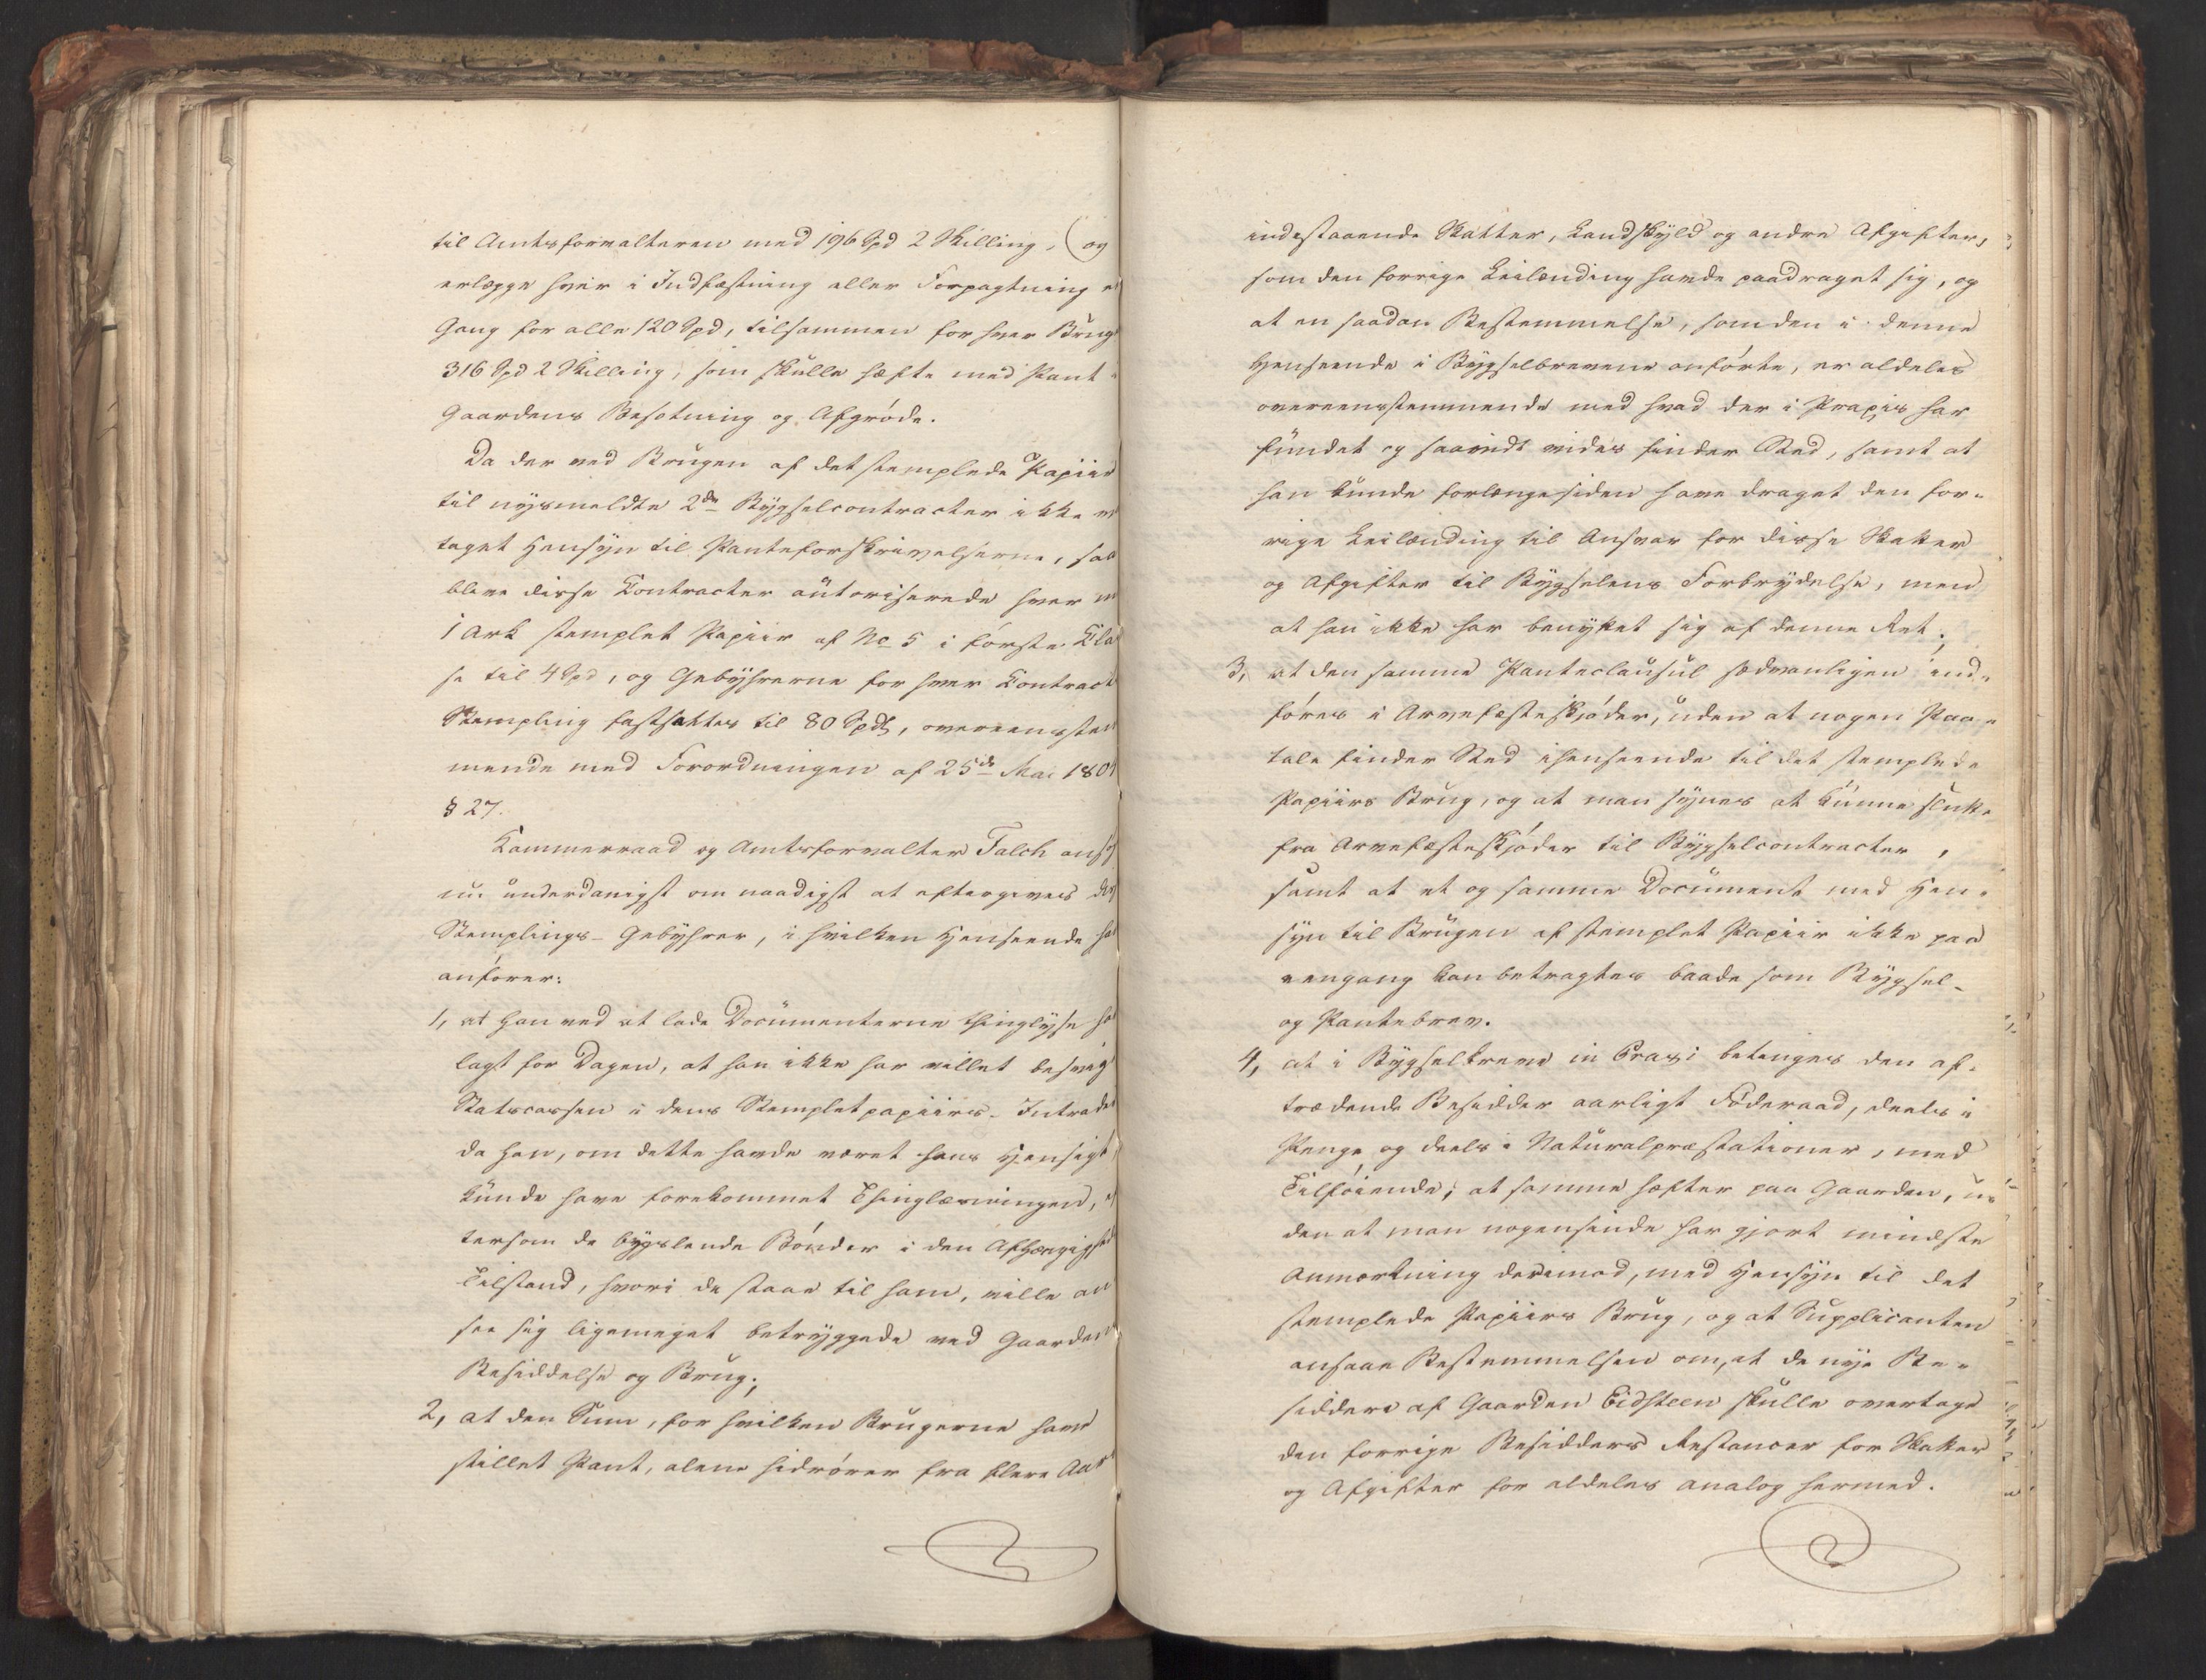 til Amtsforvalteren med 196 Spd 2 Skilling, (og
erlægge hver i Indfæstning eller Forpagtning e
Gang for alle 120 Spd, tilsammen for hver Brug
316 Spd 2 Skilling, som skulle hæfte med Pant i
Gaardens Besætning og Afgrøde.
Da der ved Brugen af det stemplede Papiir
til nysmeldte 2de Bygselcontracter ikke va
taget Hensyn til Panteforskrivelserne, saa
bleve disse Contracter autoriserede hver m
1 Ark stemplet Papiir af No 5 i første Clas
se til 4 Spd, og Gebyhrerne for hver Contract
Stempling fastsattes til 80 Spd, overeensstem
mende med Forordningen af 25de Mai 1804
§ 27.
Kammerraad og Amtsforvalter Falch ansø
nu underdanigst om naadigst at eftergives dis
Stemplings-Gebyhrer, i hvilken Henseende ha
anfører:
1, at han ved at lade Documenterne thinglyse ha
lagt for Dagen, at han ikke har villet besvig
Statscassen i dens Stempletpapiirs-Intrader
da han, om dette havde været hans Hensigt,
kunde have forekommet Thinglæsningen, ef
tersom de bygslende Bønder i den Afhængighed
Tilstand, hvori de staae til ham, ville an
see sig ligemeget betryggede ved Gaardens
Besiddelse og Brug;
2, at den Sum, for hvilken Brugerne have
stillet Pant, alene hidrører fra flere Aar
indestaaende Skatter, Landskyld og andre Afgifter,
som den forrige Leilænding havde paadraget sig, og
at en saadan Bestemmelse, som den i denne
Henseende i Bygselbrevene anførte, er aldeles
overeensstemmende med hvad der i Praxis har
fundet og saavidt vides finder Sted, samt at
han kunde forlænge siden have draget den for-
rige Leilænding til Ansvar for disse Skatter
og Afgifter til Bygselens Forbrydelse, men
at han ikke har benyttet sig af denne Ret;
3, at den samme Panteclausul sædvanligen ind-
føres i Arvefæsteskjøder, uden at nogen Paa-
tale finder Sted ihenseende til det stemplede
Papiirs Brug, og at man synes at kunne slutte
fra Arvefæsteskjøder til Bygselcontracter,
samt at et og samme Document med Hen-
syn til Brugen af stemplet Papiir ikke paa
eengang kan betragtes baade som Bygsel-
og Pantebrev.
4, at i Bygselbreve in Praxi betinges den af-
trædende Besidder aarligt Føderaad, deels i
Penge og deels i Naturalpræstationer, med
Tilføiende, at samme hæfter paa Gaarden, u-
den at man nogensinde har gjort mindste
Anmærkning derimod, med Hensyn til det
stemplede Papiirs Brug, og at Supplicanten
ansaae Bestemmelsen om, at de nye Be-
siddere af Gaarden Eidsteen skulle overtage
den forrige Besidders Restancer for Skatter
og Afgifter for aldeles analog hermed.